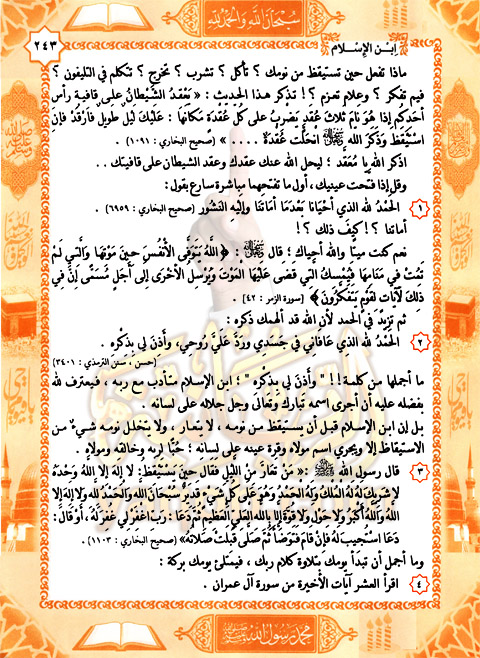 سُبْحَانَ اللَّهِ وَالْحَمْدُ لِلَّهِ
٢٤٣
ابن الإسلام
ماذا تفعل حين تستيقظ من نومك ؟ تأكل ؟ تشرب ؟ تخرج ؟ تتكلم في التليفون ؟
فيم تفكر ؟ وعلام تعزم ؟! تذكر هذا الحديث : « يَعْقِدُ الشَّيْطَانُ عَلى قَافِيَةِ رَأْسِ
أَحَدِكُم إِذا هُوَ نَامَ ثَلاثَ عُقَدٍ يَضْرِبُ عَلى كُلِّ عُقْدَةٍ مَكَانَهَا : عَلَيْكَ لَيْلٌ طَوِيلٌ فَارْقُدْ فَإِنِ
اسْتَيْقَظَ وَذَكَرَ اللهَ ﷻ انْحَلَّتْ عُقْدَةٌ .... » (صحيح البخاري : ١٠٩١)
اذكر الله يا مُعَقد ؛ ليحل الله عنك عقدك وعقد الشيطان على قافيتك ..
وقل إذا فتحت عينيك ، أول ما تفتحهما مباشرة سارع بقول :
١ الْحَمْدُ لله الذي أَحْيَانَا بَعْدَمَا أَمَاتَنَا وإِلَيْهِ النُّشُور (صحيح البخاري : ٦٩٥٩) .
أماتنا ؟! كيف ذلك ؟!
نعم كنت ميتًا والله أحياك ؛ قال ﷻ : ﴿ اللَّهُ يَتَوَفَّى الْأَنْفُسَ حِينَ مَوْتِهَا وَالَّتِي لَمْ
تَمُتْ فِي مَنَامِهَا فَيُمْسِكُ الَّتِي قَضَى عَلَيْهَا الْمَوْتَ وَيُرْسِلُ الْأُخْرَى إِلَى أَجَلٍ مُسَمًّى إِنَّ فِي
ذَلِكَ لَآيَاتٍ لِقَوْمٍ يَتَفَكَّرُونَ ﴾ (سورة الزمر : ٤٢)
ثم تزيد في الحمد لأن الله قد ألهمك ذكره :
٢ الْحَمْدُ لله الذي عَافَانِي فِي جَسَدِي وَرَدَّ عَلَيَّ رُوحِي ، وأَذِنَ لِي بِذِكْرِه .
(حسن ، سنن الترمذي : ٣٤٠١)
ما أجملها من كلمة !!! " وأذن لي بذكره " ؛ ابن الإسلام متأدب مع ربه ، فيعترف لله
بفضله عليه أن أجرى اسمه تَبارك وتَعالَى وجل جلاله على لسانه .
بل إن ابن الإسلام قبل أن يستيقظ من نومه ، لا يتعار ، ولا يتخلل نومه شيءٌ من
الاستيقاظ إلا ويجري اسم مولاه وقرة عينه على لسانه ؛ حُبًّا لربه وخالقه ومولاه .
٣ قال رسول الله ﷺ : « مَنْ تَعَارَّ مِنَ اللَّيْلِ فَقَالَ حِينَ يَسْتَيْقِظُ : لَا إِلَهَ إِلَّا اللهُ وَحْدَهُ
لا شَرِيكَ لَهُ لَهُ الْمُلْكُ وَلَهُ الْحَمْدُ وَهُوَ عَلَى كُلِّ شَيْءٍ قَدِيرٌ سُبْحَانَ اللهِ وَالْحَمْدُ لله وَلا إِلَهَ إِلا
اللهُ وَاللهُ أَكْبَرُ وَلا حَوْلَ وَلا قُوَّةَ إِلا بِاللهِ الْعَلِيِّ الْعَظِيمِ ثُمَّ دَعَا : رَبِّ اغْفِرْ لِي غُفِرَ لَهُ ، أَوْ قَالَ :
دَعَا اسْتُجِيبَ لَهُ فَإِنْ قَامَ فَتَوَضَّأَ ثُمَّ صَلَّى قُبِلَتْ صَلَاتُهُ» (صحيح البخاري : ١١٠٣)
وما أجمل أن تبدأ يومك بتلاوة كلام ربك ، فيمتلئ يومك بركة :
٤ اقرأ العشر آيات الأخيرة من سورة آل عمران .
محمد رسول الله ﷺ